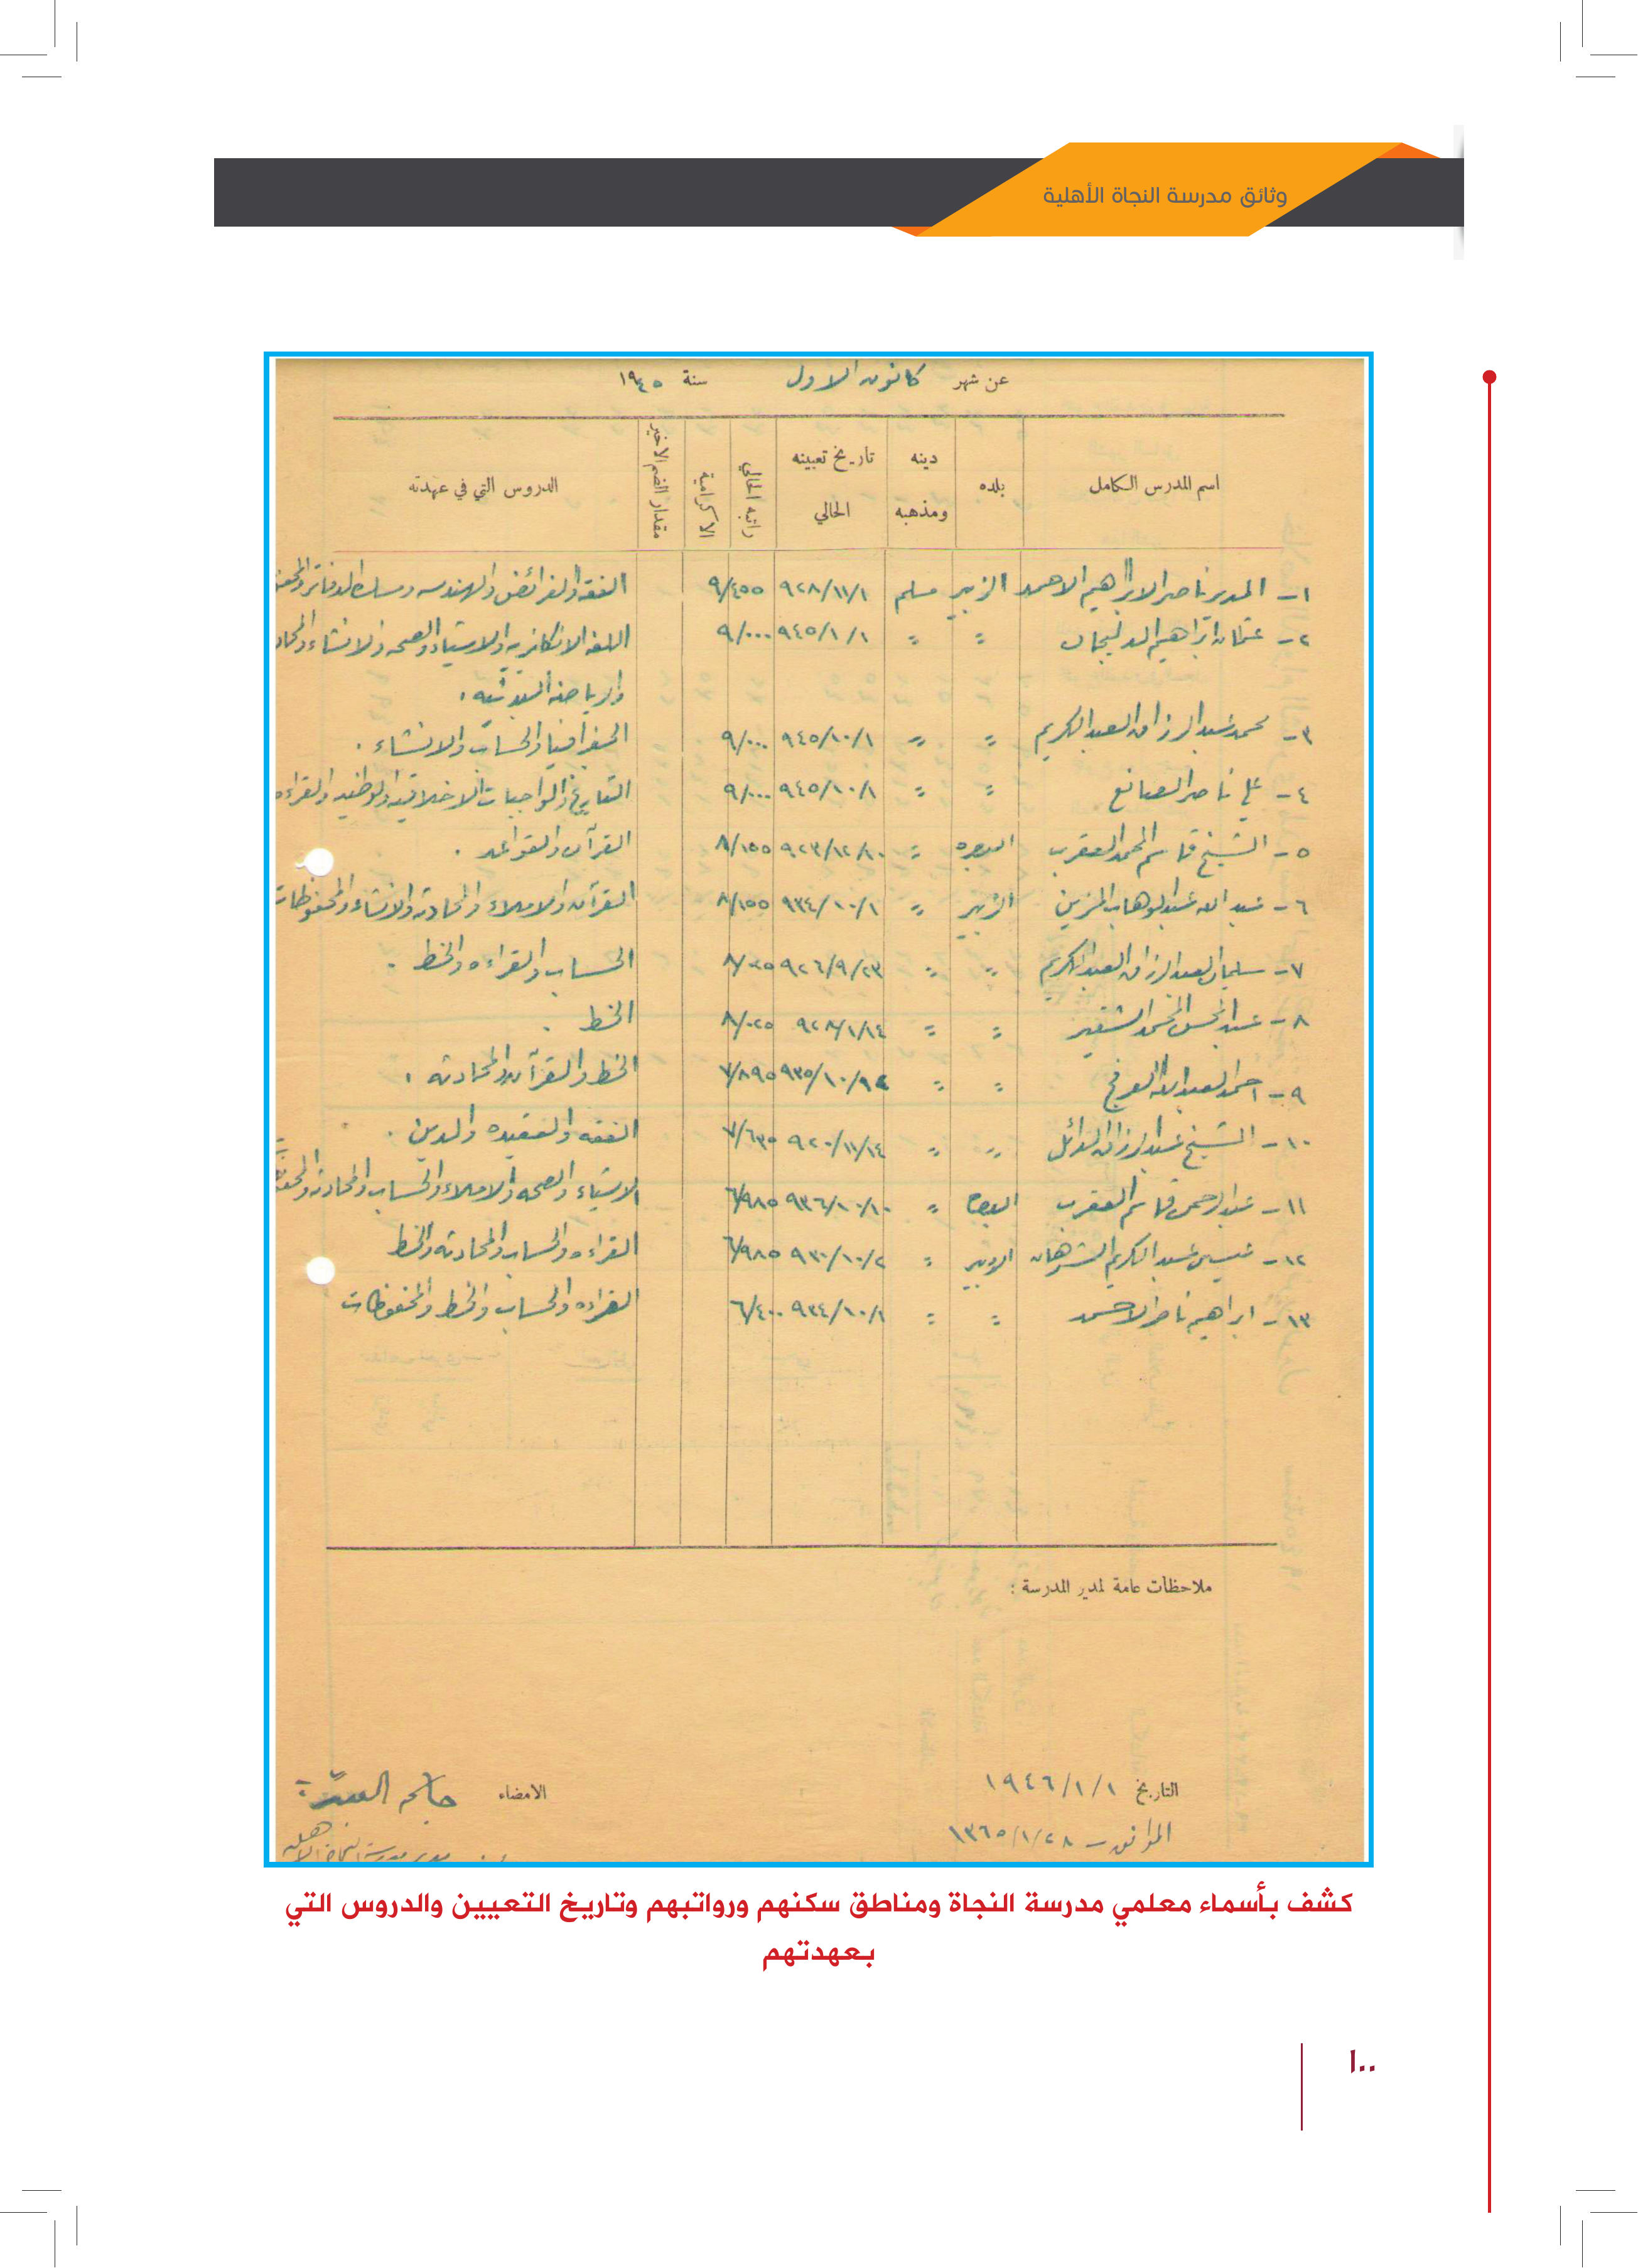 وثائق مدرسة النجاة الأهلية
عن شهر كانون الاول سنة ١٩٤٥
اسم المدرس الكامل بلده دينه ومذهبه تاريخ تعيينه الحالي راتبه الحالي الاكرامية مقدار الضم الاخير الدروس التي في عهدته
١- المدير ناصر الابراهيم الاحمد الزبير مسلم ٩٢٨/١١/١ ٩/٤٥٥ الفقه والفرائض والهندسه ومسك الدفاتر
٢- عثمان ابراهيم الدليجان = = ٩٤٥/١/١ ٩/٠٠٠ اللغه الانكليزيه والاشياء والصحه والانشاء
والرياضه البدنيه .
٣- محمد عبد الرزاق العبد الكريم = = ٩٤٥/١٠/١ ٩/٠٠٠ الجغرافيا والحساب والانشاء .
٤- علي ناصر الصانع = = ٩٤٥/١٠/١ ٩/٠٠٠ التاريخ والواجبات الاخلاقيه والوطنيه والقراءه
٥- الشيخ قاسم المحمد العقرب البصره = ٩٢٣/١٢/١٠ ٨/١٥٥ القرآن والقواعد .
٦- عبد الله عبد الوهاب المزين الزبير = ٩٣٤/١٠/١ ٨/١٥٥ القرآن والاملاء والمحادثه والانشاء والمحفوظات
٧- سليمان العبد الرزاق العبد الكريم = = ٩٢٦/٩/٢٣ ٨/٠٢٥ الحساب والقراءه والخط .
٨- عبد المحسن المحمد الشقير = = ٩٢٨/١/١٤ ٨/٠٢٥ الخط .
٩- احمد العبد الله العرفج = = ٩٣٥/١٠/١٤ ٧/٨٩٥ الخط والقرآن والمحادثه .
١٠- الشيخ عبد الرزاق الدائل = = ٩٢٠/١١/١٤ ٧/٦٣٥ الفقه والعقيده والدين .
١١- عبد الرحمن قاسم العقرب البصرة = ٩٣٦/١٠/١٠ ٦/٩٨٥ الاشياء والصحه والاملاء والحساب والمحادثه
١٢- عيسى عبد الكريم الشرهان الزبير = ٩٣٠/١٠/٢ ٦/٩٨٥ القراءه والحساب والمحادثه والخط
١٣- ابراهيم ناصر الاحمد = = ٩٣٤/١٠/١ ٦/٤٠٠ القراءه والحساب والخط والمحفوظات
ملاحظات عامة لمدير المدرسة :
التاريخ ١٩٤٦/١/١ الامضاء
الموافق - ١٣٦٥/١/٢٨ مدير مدرسة النجاة الاهلية
كشف بأسماء معلمي مدرسة النجاة ومناطق سكنهم ورواتبهم وتاريخ التعيين والدروس التي
بعهدتهم
١٠٠